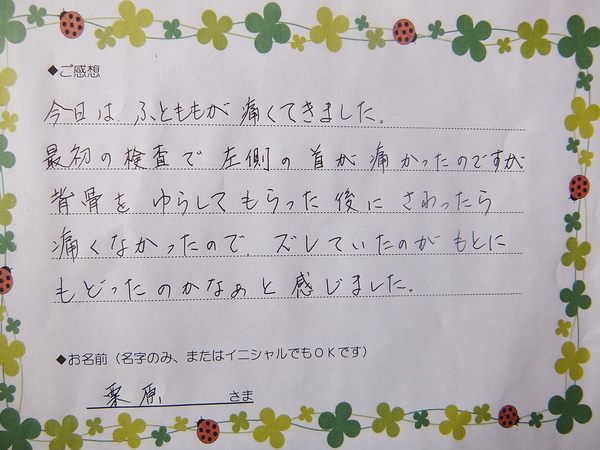 ◆ご感想
今日は ふとももが 痛くてきました。
最初の検査で左側の首が痛かったのですが
背骨を ゆらしてもらった後に さわったら
痛くなかったので、ズレていたのが もとに
もどったのかなぁと感じました。
◆お名前（名字のみ、またはイニシャルでもＯＫです）
栗原 さま